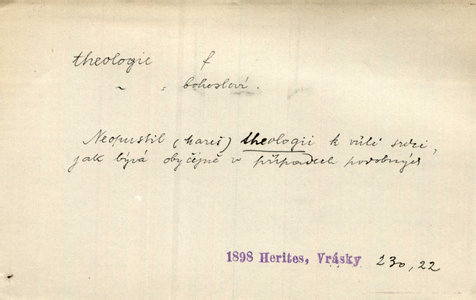 theologie f
~ , bohosloví.
Neopustil (Kareš) theologii k vůli srdci,
jak bývá obyčejně v případech podobných
1898 Herites, Vrásky 230,22